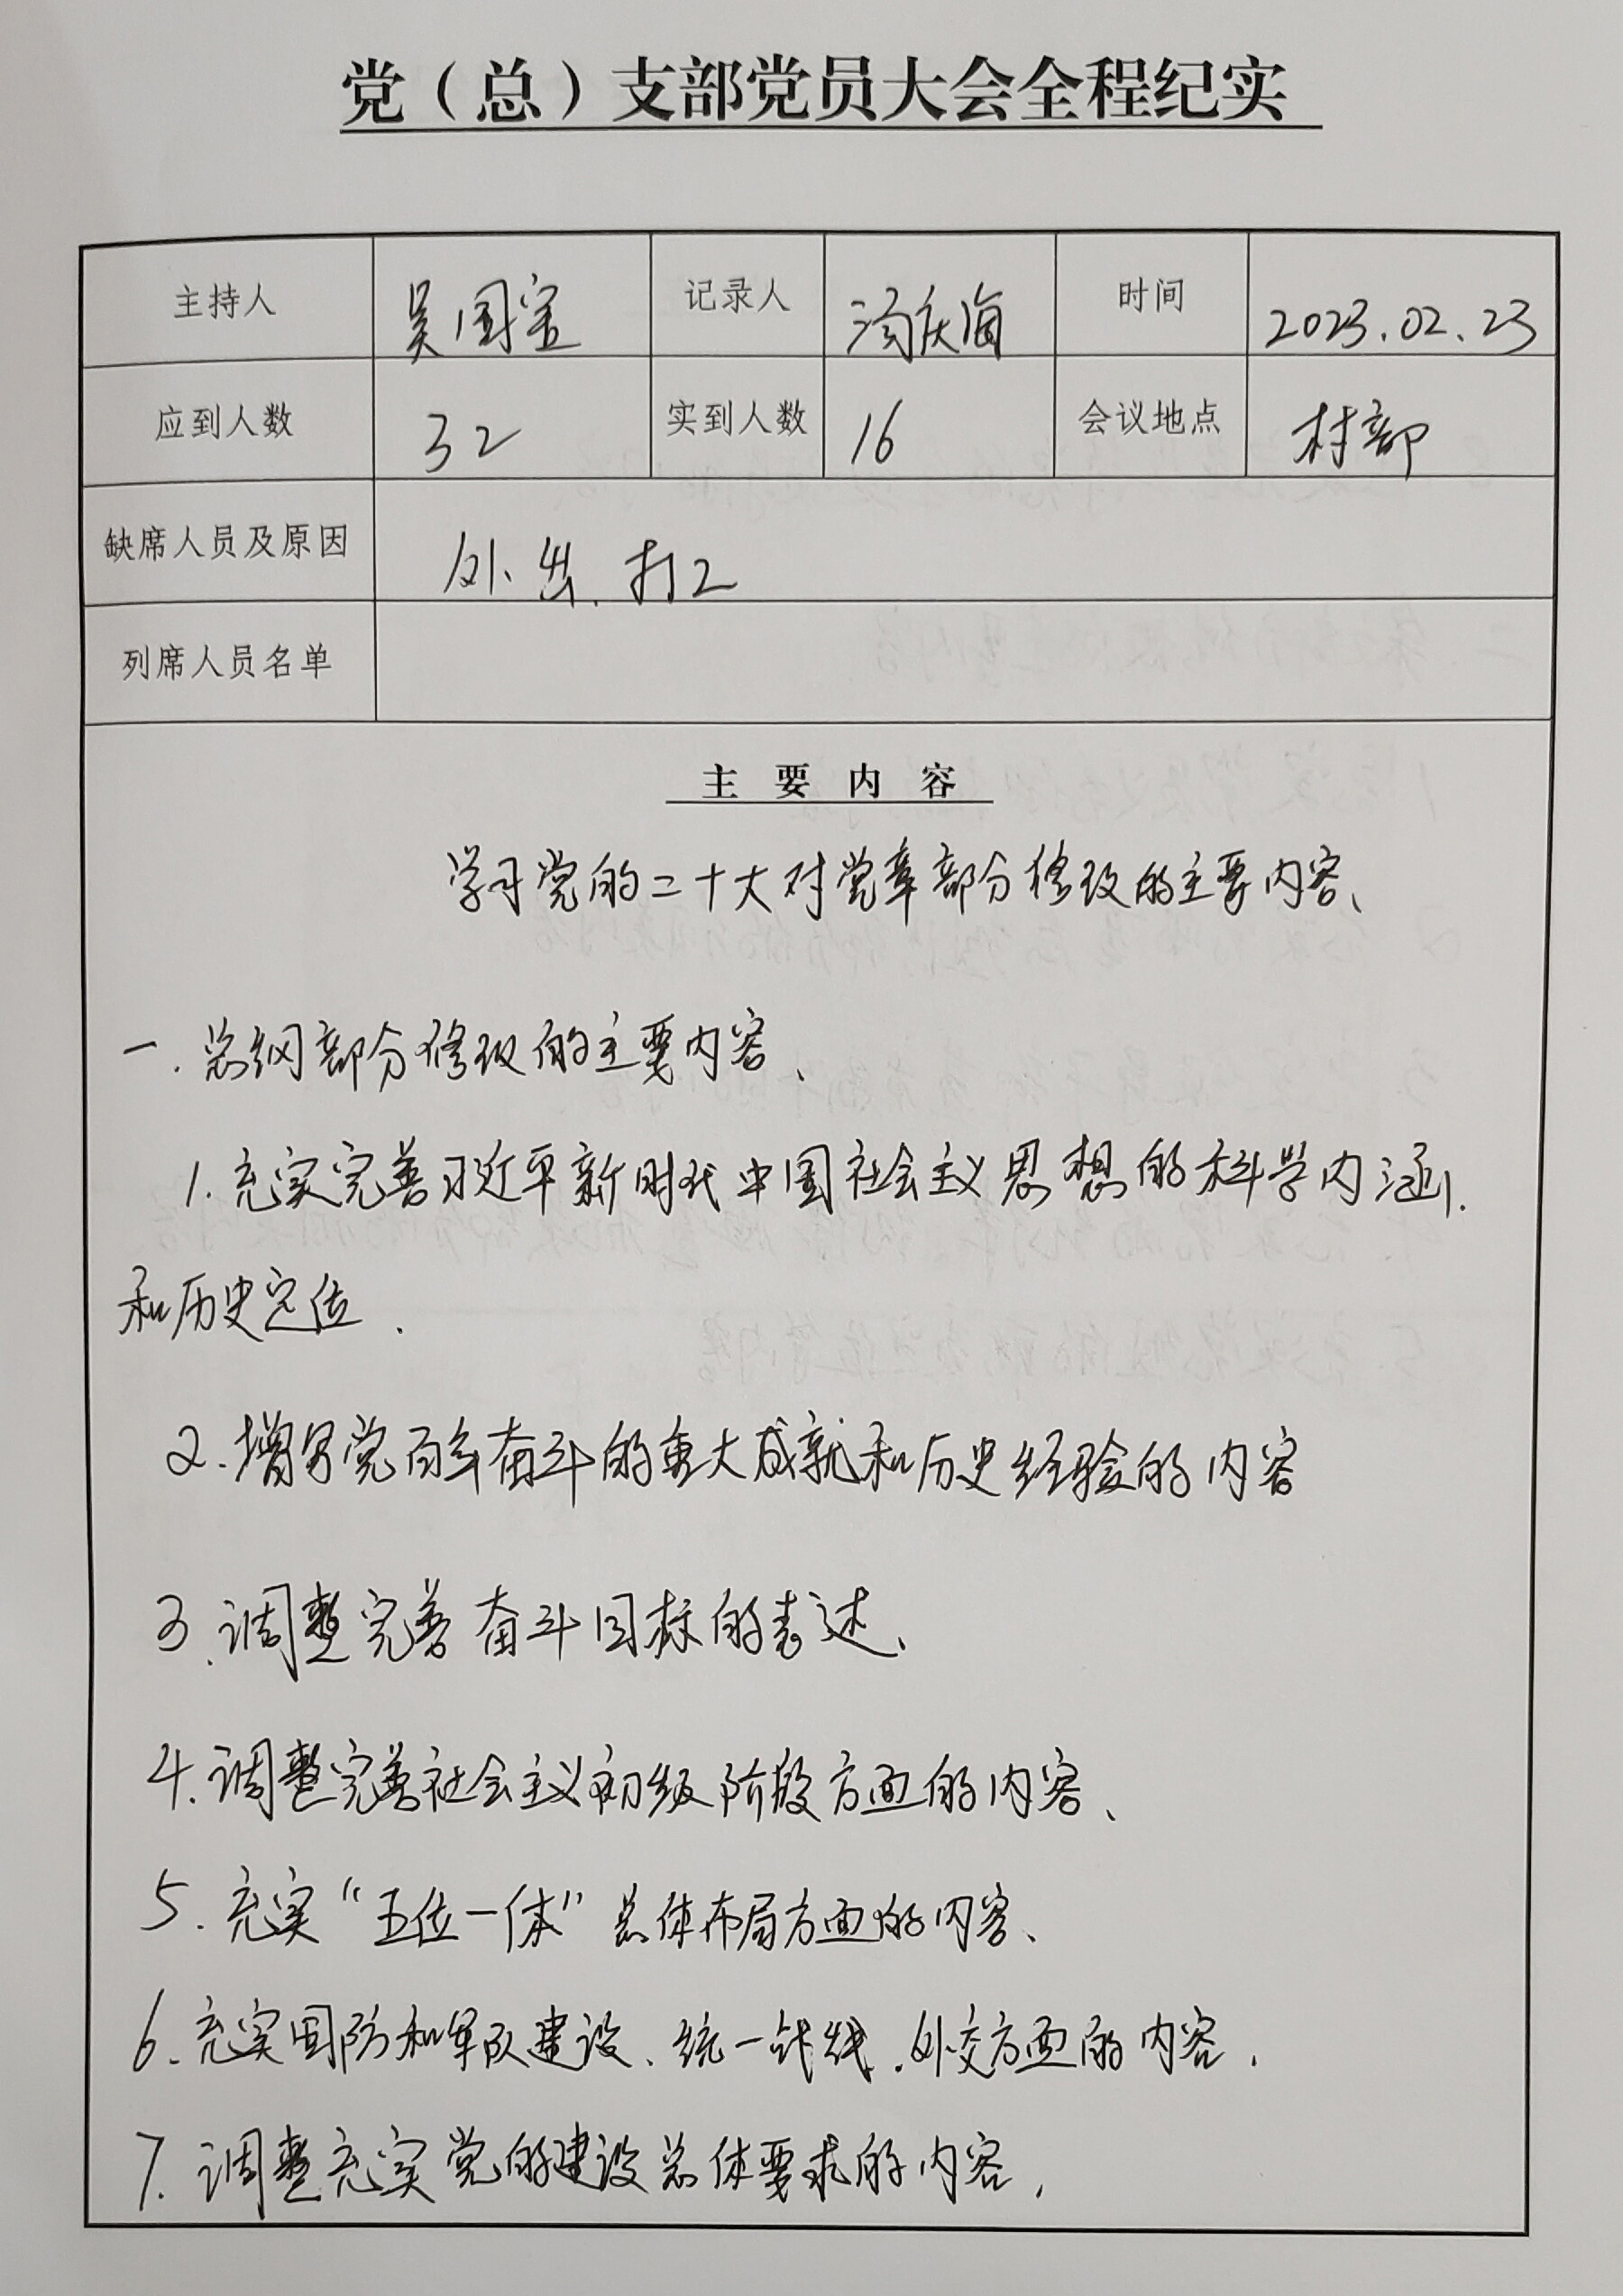 党（总）支部党员大会全程纪实
主持人 吴国宝 记录人 汤庆海 时间 2023.02.23
应到人数 32 实到人数 16 会议地点 村部
缺席人员及原因 外出、打工
列席人员名单
主要内容
学习党的二十大对党章部分修改的主要内容、
一.总纲部分修改的主要内容、
1.充实完善习近平新时代中国社会主义思想的科学内涵.
和历史定位.
2.增写党百年奋斗的重大成就和历史经验的内容
3.调整完善奋斗目标的表述、
4.调整完善社会主义初级阶段方面的内容、
5.充实“五位一体”总体布局方面的内容、
6.充实国防和军队建设、统一战线.外交方面的内容.
7.调整充实党的建设总体要求的内容.